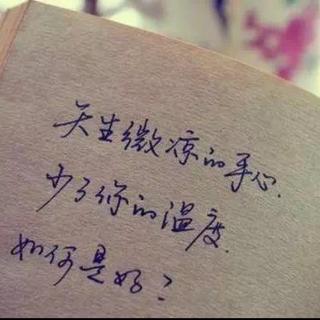 天生微凉的手心.
少了你的温度.
如何是好?